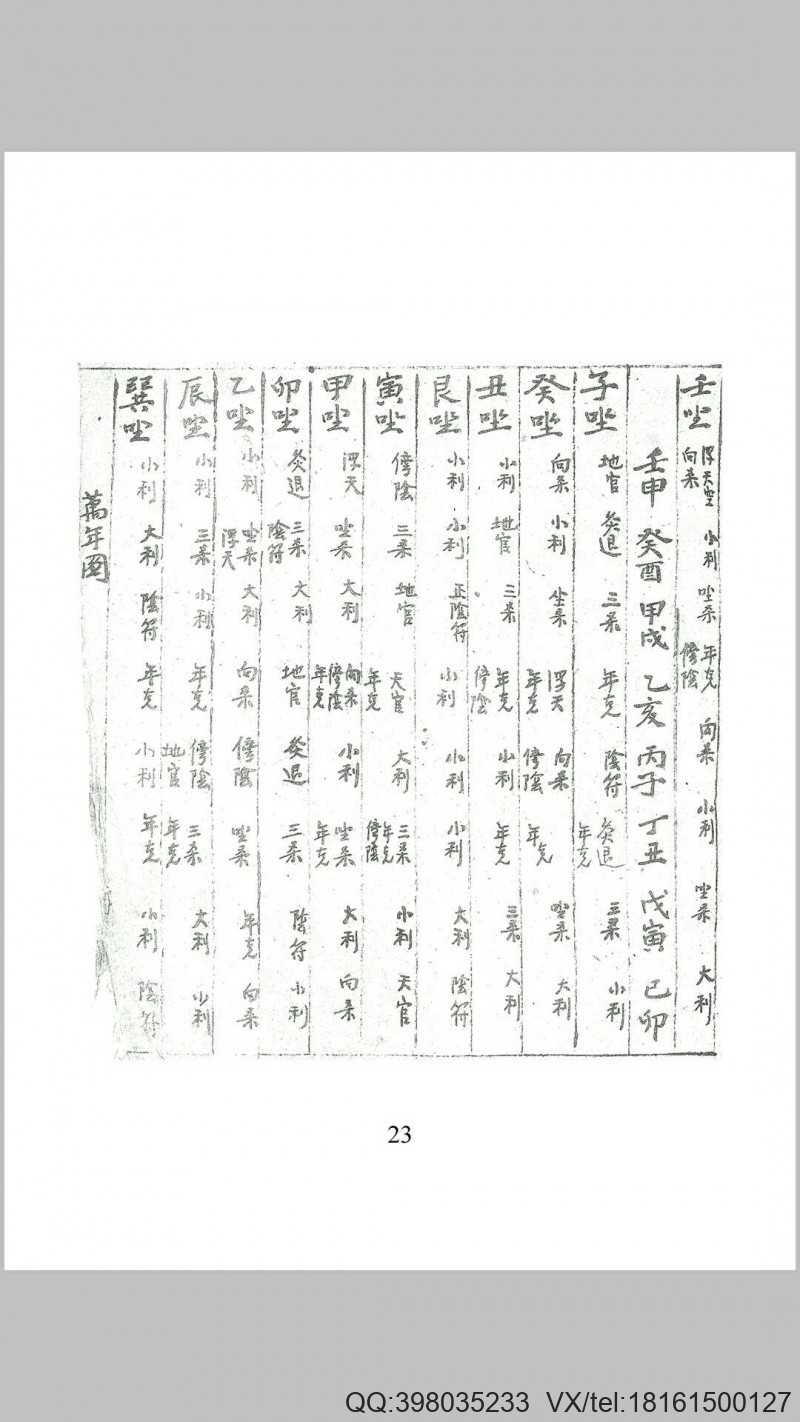 壬坐 浮天空 向杀 小利 坐杀 年克 傍陰 向杀 小利 坐杀 大利
壬申 癸酉 甲戌 乙亥 丙子 丁丑 戊寅 己卯
子坐 地官 灸退 三杀 年克 陰符 灸退 年克 三杀 小利
癸坐 向杀 小利 坐杀 浮天 年克 向杀 傍陰 年克 坐杀 大利
丑坐 小利 地官 三杀 年克 傍陰 小利 年克 三杀 大利
艮坐 小利 小利 正陰符 小利 小利 小利 大利 陰符
寅坐 傍陰 三杀 地官 天官 年克 大利 三杀 年克 傍陰 小利 天官
甲坐 浮天 坐杀 大利 向杀 傍陰 年克 小利 坐杀 年克 大利 向杀
卯坐 灸退 三杀 陰符 大利 地官 灸退 三杀 陰符 小利
乙坐 小利 坐杀 浮天 大利 向杀 傍陰 坐杀 年克 向杀
辰坐 小利 三杀 小利 年克 傍陰 地官 三杀 年克 大利 小利
巽坐 小利 大利 陰符 年克 小利 年克 小利 陰符
萬年圖
23
QQ:398035233 VX/tel:18161500127